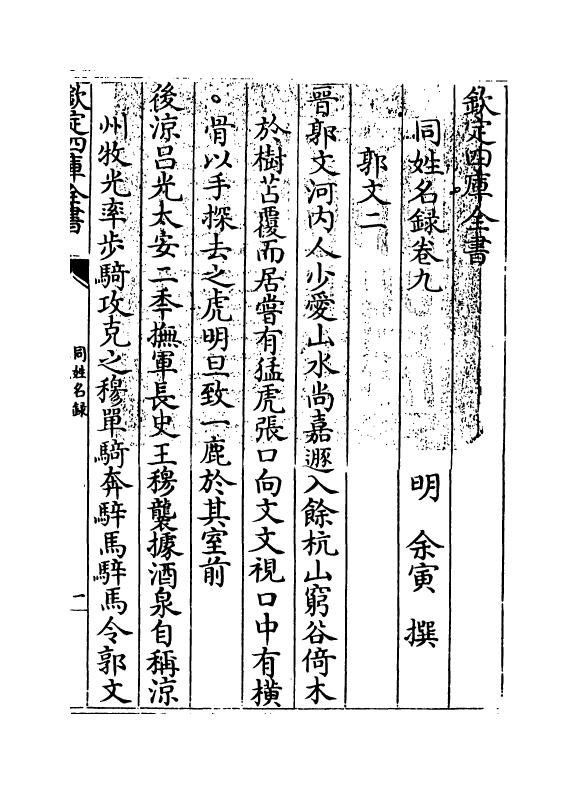 欽定四庫全書
同姓名録卷九
明 余寅 撰
郭文二
晉郭文河内人少愛山水尚嘉遯入餘杭山窮谷倚木
於樹苫覆而居嘗有猛虎張口向文文視口中有横
骨以手探去之虎明旦致一鹿於其室前
後涼吕光太安二季撫軍長史王穆襲據酒泉自稱涼
州牧光率歩騎攻克之穆單騎奔騂馬騂馬令郭文
欽定四庫全書
同姓名録
二